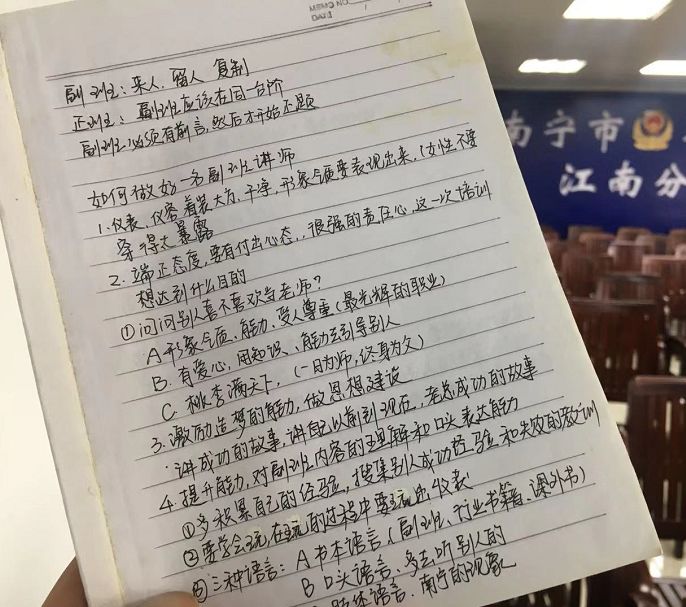 MEMO NO.
DATE / /
副班: 来人、留人 复制
正班: 副班应该在同一台阶
副班必须有前言,然后才开始不题
如何做好一名副班讲师
1.仪表、仪容着装大方、干净,形象气质要表现出来,(女性不要
穿得太暴露
2.端正态度,要有付出心态,很强的责任心,这一次培训
想达到什么目的
①问问别人喜不喜欢当老师?
A形象气质、能力、受人尊重(最光辉的职业)
B.有爱心,用知识、能力去引导别人
C.桃李满天下,(一日为师,终身为父)
3.激励造梦的能力,做思想建设
讲成功的故事,讲自己从前到现在,老总成功的故事
4.提升能力,对副班内容的理解和口头表达能力
①多积累自己的经验,搜集别人成功经验和失败的教训
②要学会玩,在玩的过程中要玩出仪表
③三种语言:A书本语言(副班、行业书籍、课外书)
B口头语言、多去听别人的
肢体语言、南宁的现象
南宁市
江南分